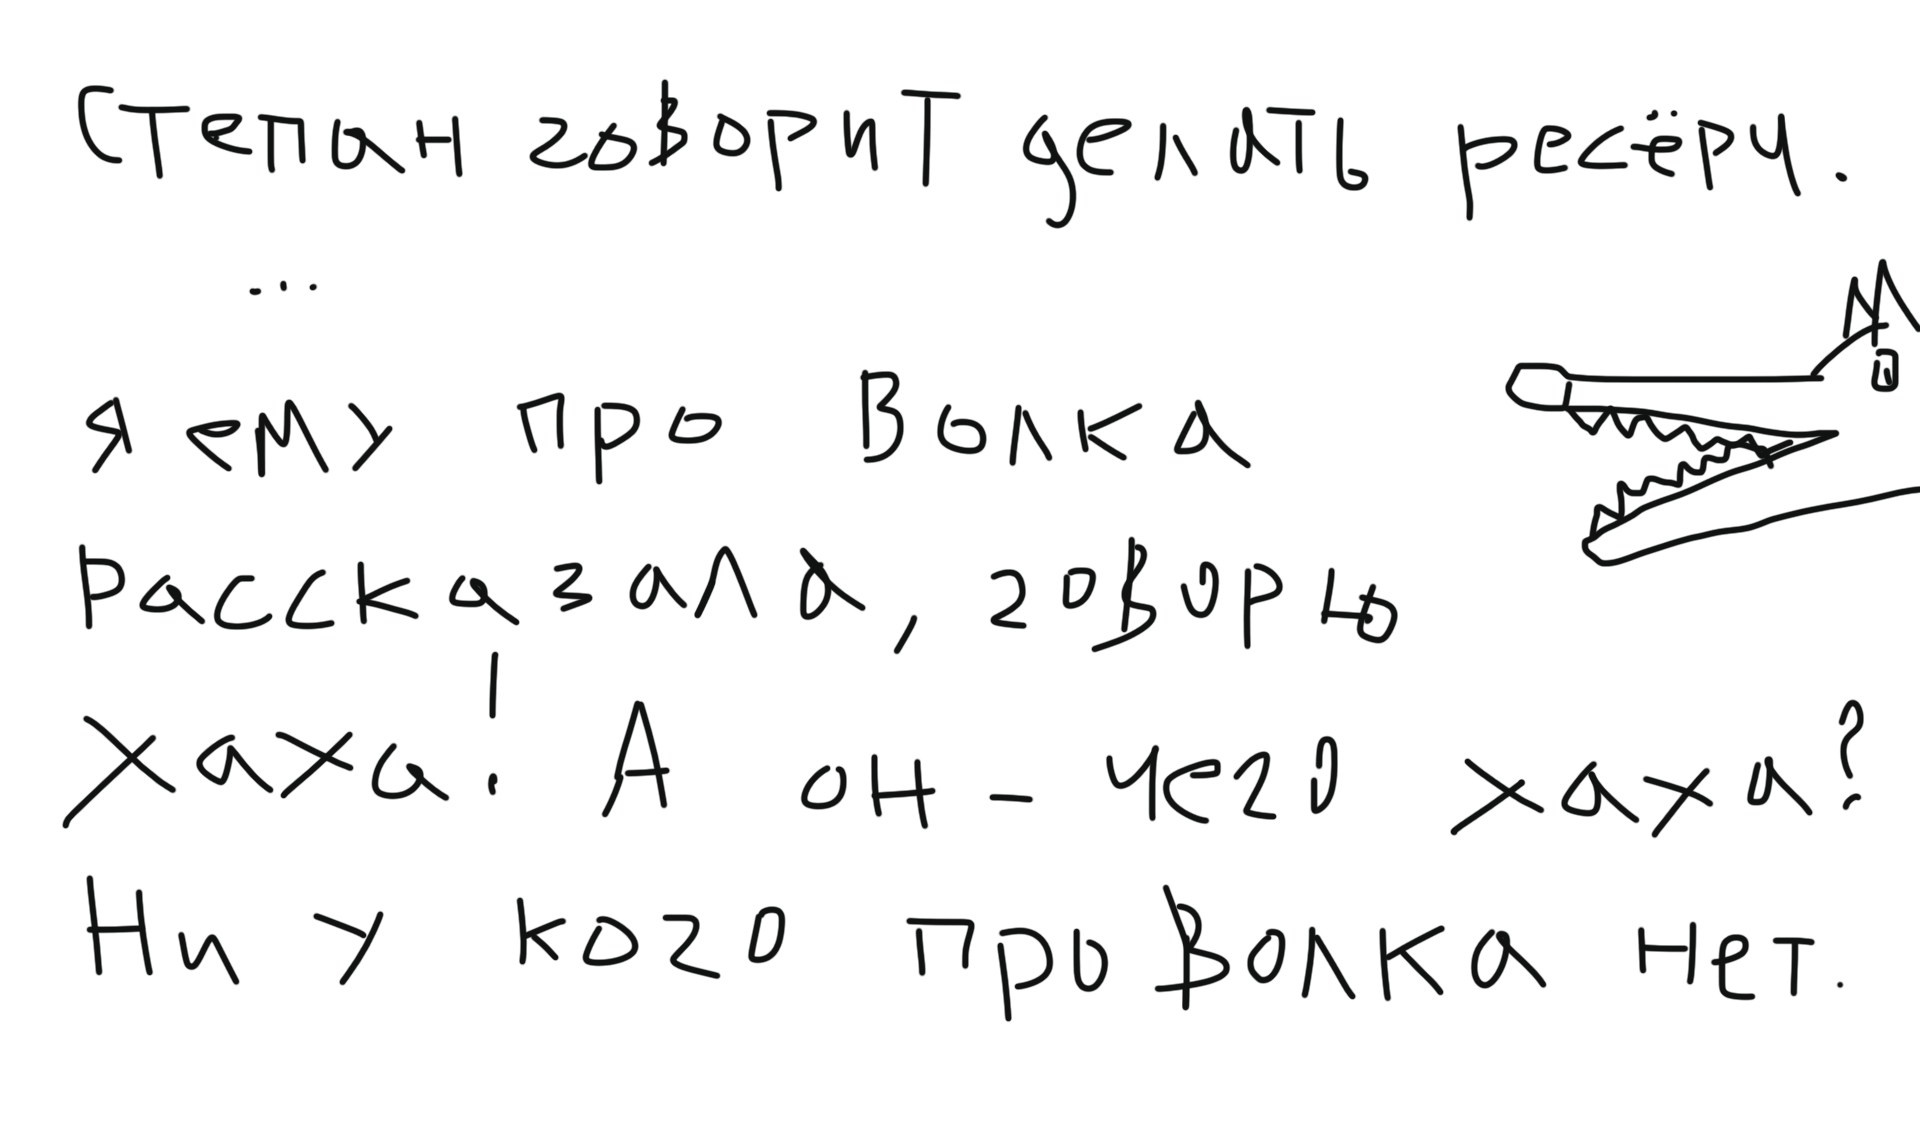 Степан говорит делать ресёрч.
...
Я ему про Волка
Рассказала, говорю
хаха! А он - чего хаха?
Ни у кого про Волка нет.